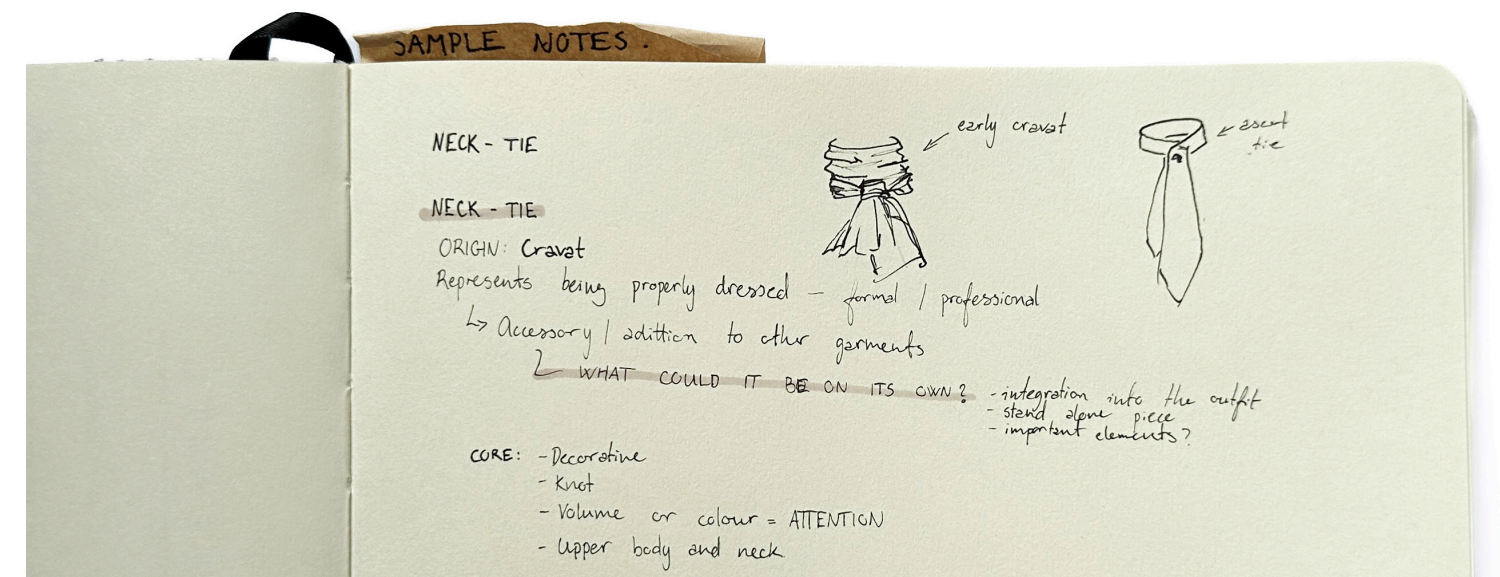 SAMPLE NOTES.
NECK - TIE
early cravat
ascot
tie
NECK - TIE
ORIGIN: Cravat
Represents being properly dressed - formal / professional
↳ Accessory / adittion to other garments
WHAT COULD IT BE ON ITS OWN?
- integration into the outfit
- stand alone piece
- important elements?
CORE: - Decorative
- Knot
- Volume or colour = ATTENTION
- Upper body and neck